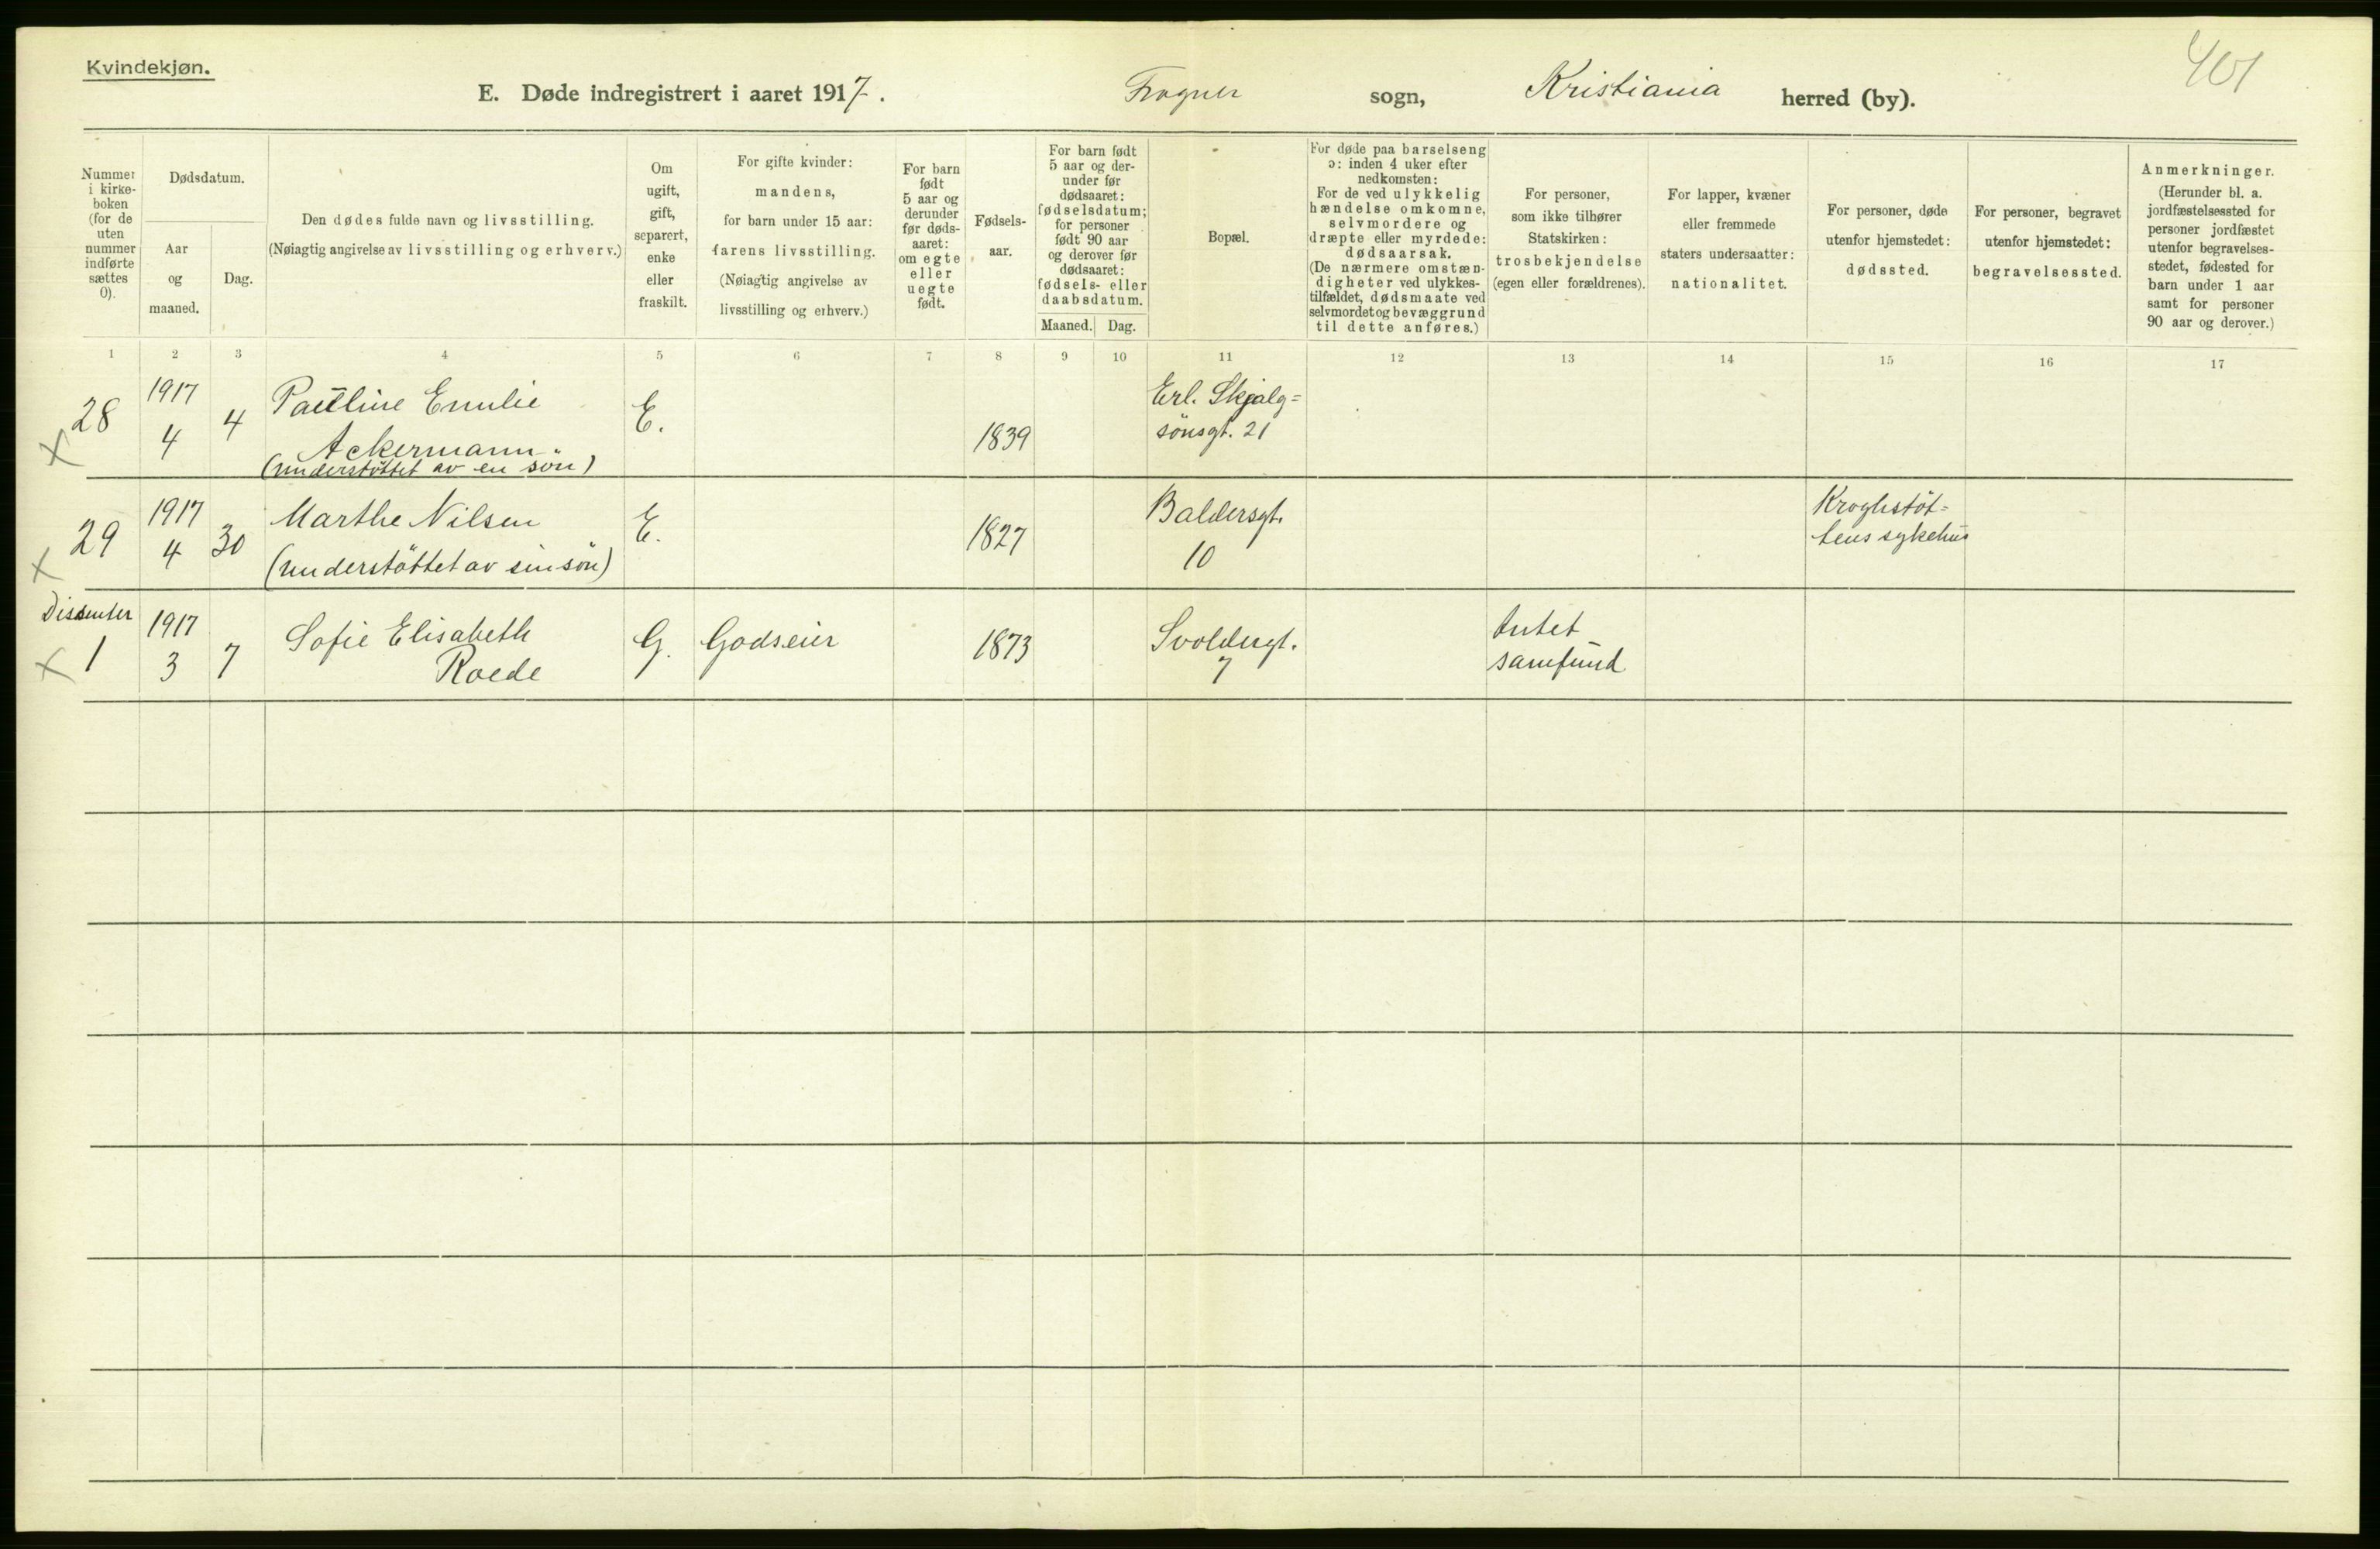 Kvindekjøn.
401
E. Døde indregistrert i aaret 1917. Frogner sogn, Kristiania herred (by).
Nummer
i kirke-
boken
(for de
uten
nummer
indførte
sættes
0).
Dødsdatum.
Aar
og
maaned.
Dag.
Den dødes fulde navn og livsstilling.
(Nøiagtig angivelse av livsstilling og erhverv.)
Om
ugift,
gift,
separert,
enke
eller
fraskilt.
For gifte kvinder:
mandens,
for barn under 15 aar:
farens livsstilling.
(Nøiagtig angivelse av
livsstilling og erhverv.)
For barn
født
5 aar og
derunder
før døds-
aaret:
om egte
eller
uegte
født.
Fødsels-
aar.
For barn født
5 aar og der-
under før
dødsaaret:
fødselsdatum;
for personer
født 90 aar
og derover før
dødsaaret:
fødsels- eller
daabsdatum.
Maaned. Dag.
Bopæl.
For døde paa barselseng
ɔ: inden 4 uker efter
nedkomsten:
For de ved ulykkelig
hændelse omkomne,
selvmordere og
dræpte eller myrdede:
dødsaarsak.
(De nærmere omstæn-
digheter ved ulykkes-
tilfældet, dødsmaate ved
selvmordet og bevæggrund
til dette anføres.)
For personer,
som ikke tilhører
Statskirken:
trosbekjendelse
(egen eller forældrenes).
For lapper, kvæner
eller fremmede
staters undersaatter:
nationalitet.
For personer, døde
utenfor hjemstedet:
dødssted.
For personer, begravet
utenfor hjemstedet:
begravelsessted.
Anmerkninger.
(Herunder bl. a.
jordfæstelsessted for
personer jordfæstet
utenfor begravelses-
stedet, fødested for
barn under 1 aar
samt for personer
90 aar og derover.)
1 2 3 4 5 6 7 8 9 10 11 12 13 14 15 16 17
x 28
1917
4
4
Pauline Emilie
Ackermann
(understöttet av en sön)
E.
1839
Erl. Skjalg=
sönsgt. 21
x 29
1917
4
30
Marthe Nilsen
(understöttet av sin sön)
E.
1827
Baldersgt.
10
Kroghstöt=
tens sykehus
Dissenter
x 1
1917
3
7
Sofie Elisabeth
Roede
G.
Godseier
1873
Svoldergt.
7
Intet
samfund